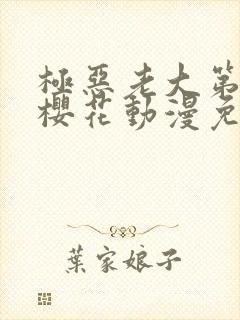 極惡老大第
櫻花動漫免
葉家娘子